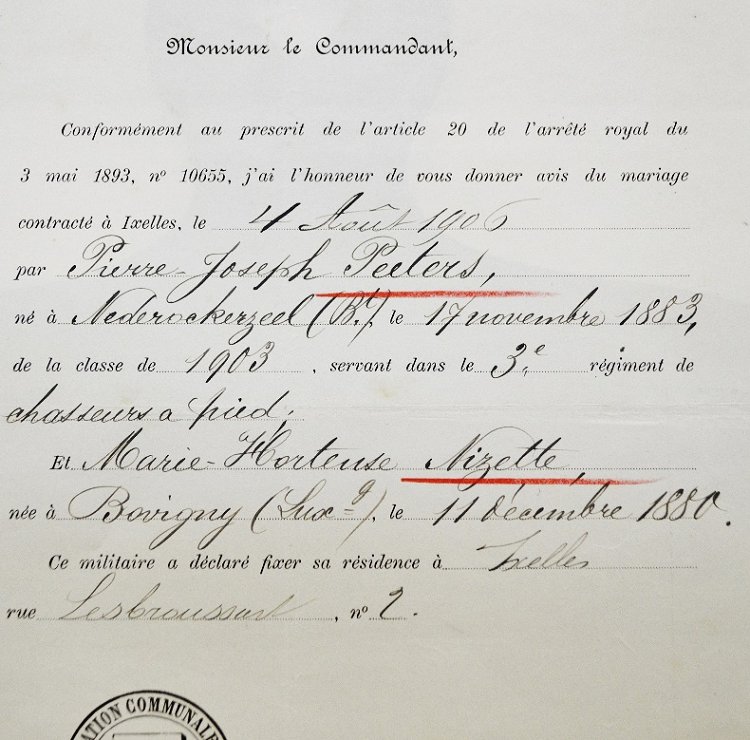 Monsieur le Commandant,
Conformément au prescrit de l'article 20 de l'arrêté royal du
3 mai 1893, nº 10655, j'ai l'honneur de vous donner avis du mariage
contracté à Ixelles, le 4 Août 1906
par Pierre-Joseph Peeters,
né à Nederockerzeel (Bt), le 17 novembre 1883,
de la classe de 1903, servant dans le 3e régiment de
chasseurs à pied.
Et Marie-Hortense Nizette,
née à Bovigny (Luxg), le 11 décembre 1880.
Ce militaire a déclaré fixer sa résidence à Ixelles
rue Lesbroussart, nº 2.
ATION COMMUNALE